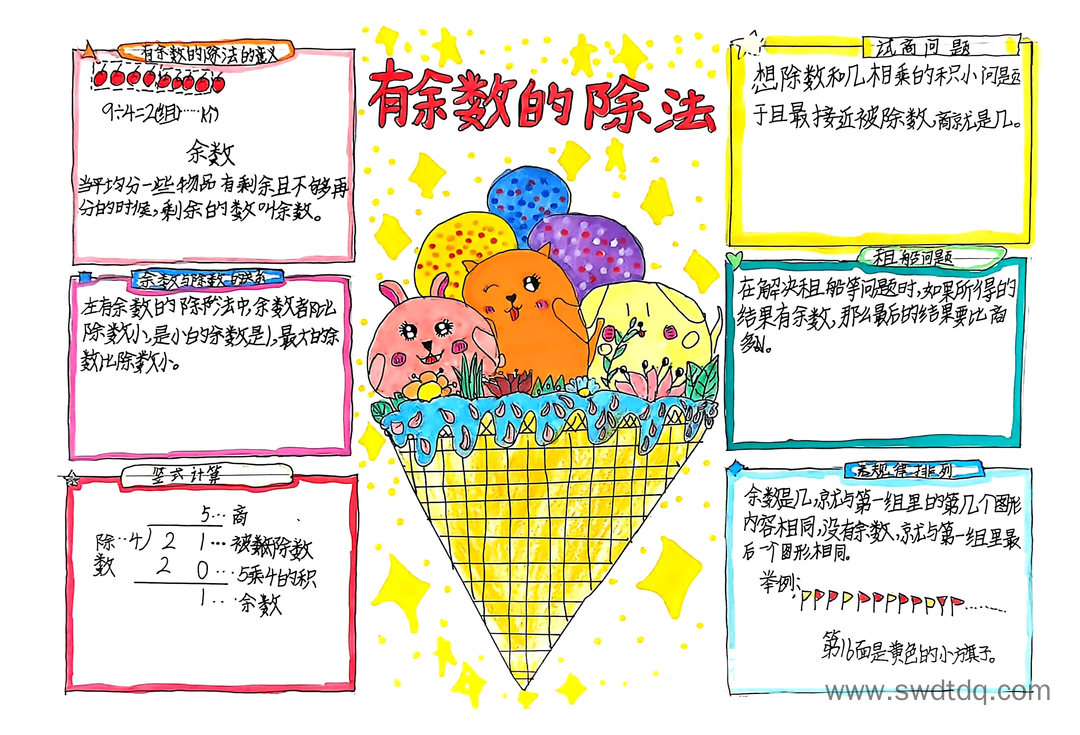 有余数的除法
有余数的除法的意义
9÷4=2(组)……1(个)
余数
当平均分一些物品有剩余且不够再
分的时候,剩余的数叫余数。
余数与除数的关系
在有余数的除法中,余数都比
除数小,最小的余数是1,最大的余
数比除数小。
竖式计算
5…商
除…4)21…被除数
数 20…5乘4的积
1…余数
试商问题
想除数和几相乘的积小问题
于且最接近被除数,商就是几。
租船问题
在解决租船等问题时,如果所得的
结果有余数,那么最后的结果要比商
多1。
按规律排列
余数是几,就与第一组里的第几个图形
内容相同,没有余数,就与第一组里最
后一个图形相同。
举例:
第16面是黄色的小旗子。
www.swdtdq.com